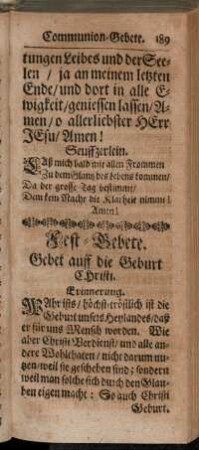 Communion-Gebete. 189
tungen Leibes und der See-
len / ja an meinem letzten
Ende / und dort in alle E-
wigkeit / geniessen lassen / A-
men / o allerliebster HErr
JEsu / Amen!
Seuffzerlein.
Laß mich bald mit allen Frommen
Zu dem Glantz des Lebens kommen /
Da der grosse Tag bestimmt /
Dem kein Nacht die Klarheit nimmt!
Amen!
Fest-Gebete.
Gebet auff die Geburt
Christi.
Erinnerung.
WAhr ists / höchst-tröstlich ist die
Geburt unsers Heylandes / daß
er für uns Mensch worden. Wie
aber Christi Verdienst / und alle an-
dere Wohlthaten / nicht darum nu-
tzen / weil sie geschehen sind; sondern
weil man solche sich durch den Glau-
ben eigen macht: So auch Christi
Geburt.